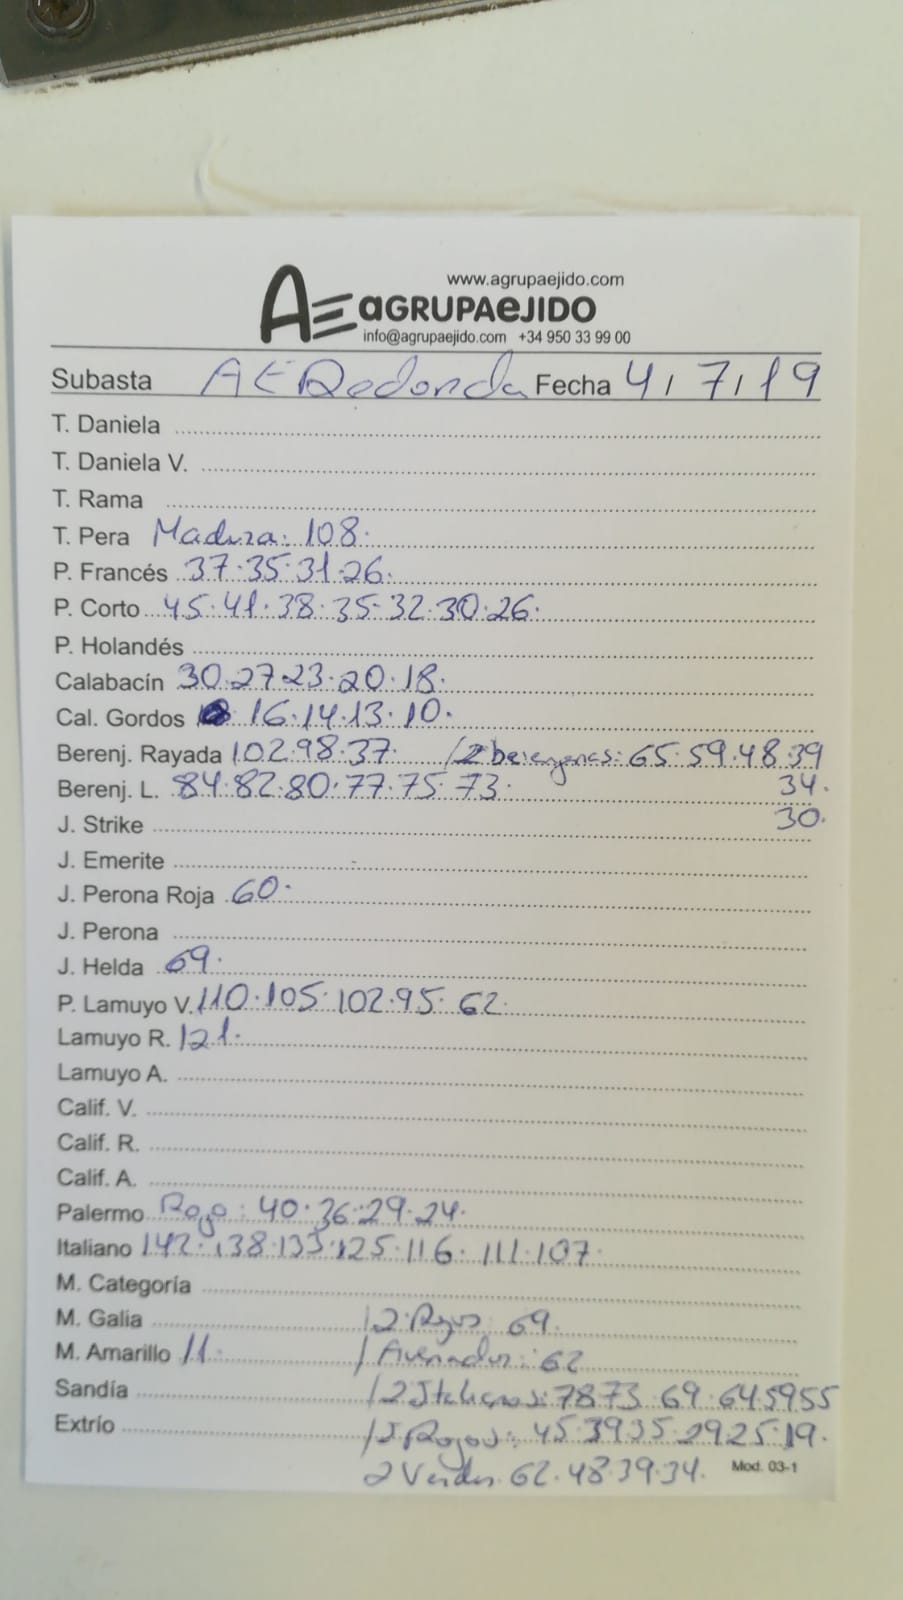 www.agrupaejido.com
AE aGRUPAeJIDO
info@agrupaejido.com +34 950 33 99 00
Subasta AE Redonda Fecha 4/7/19
T. Daniela
T. Daniela V.
T. Rama
T. Pera Madura: 108.
P. Francés 37.35.31.26.
P. Corto 45.41.38.35-32.30.26.
P. Holandés
Calabacín 30.27.23.20.18.
Cal. Gordos 16.14.13.10.
Berenj. Rayada 102.98.37. /2 berenjenas: 65.59.48.39
Berenj. L. 84.82.80.77.75.73. 34.
J. Strike 30.
J. Emerite
J. Perona Roja 60.
J. Perona
J. Helda 69.
P. Lamuyo V. 110.105.102.95.62.
Lamuyo R. 121.
Lamuyo A.
Calif. V.
Calif. R.
Calif. A.
Palermo Rojo: 40.36.29.24.
Italiano 142.138.133.125.116.111.107.
M. Categoría
M. Galia /2 Rojos: 69.
M. Amarillo 11. / : 62
Sandía /2 Italianos: 78 73.69.64 59 55
Extrío / Rojos: 45.39 35.29 25.19.
2 Verdes. 62.48.39.34. Mod. 03-1